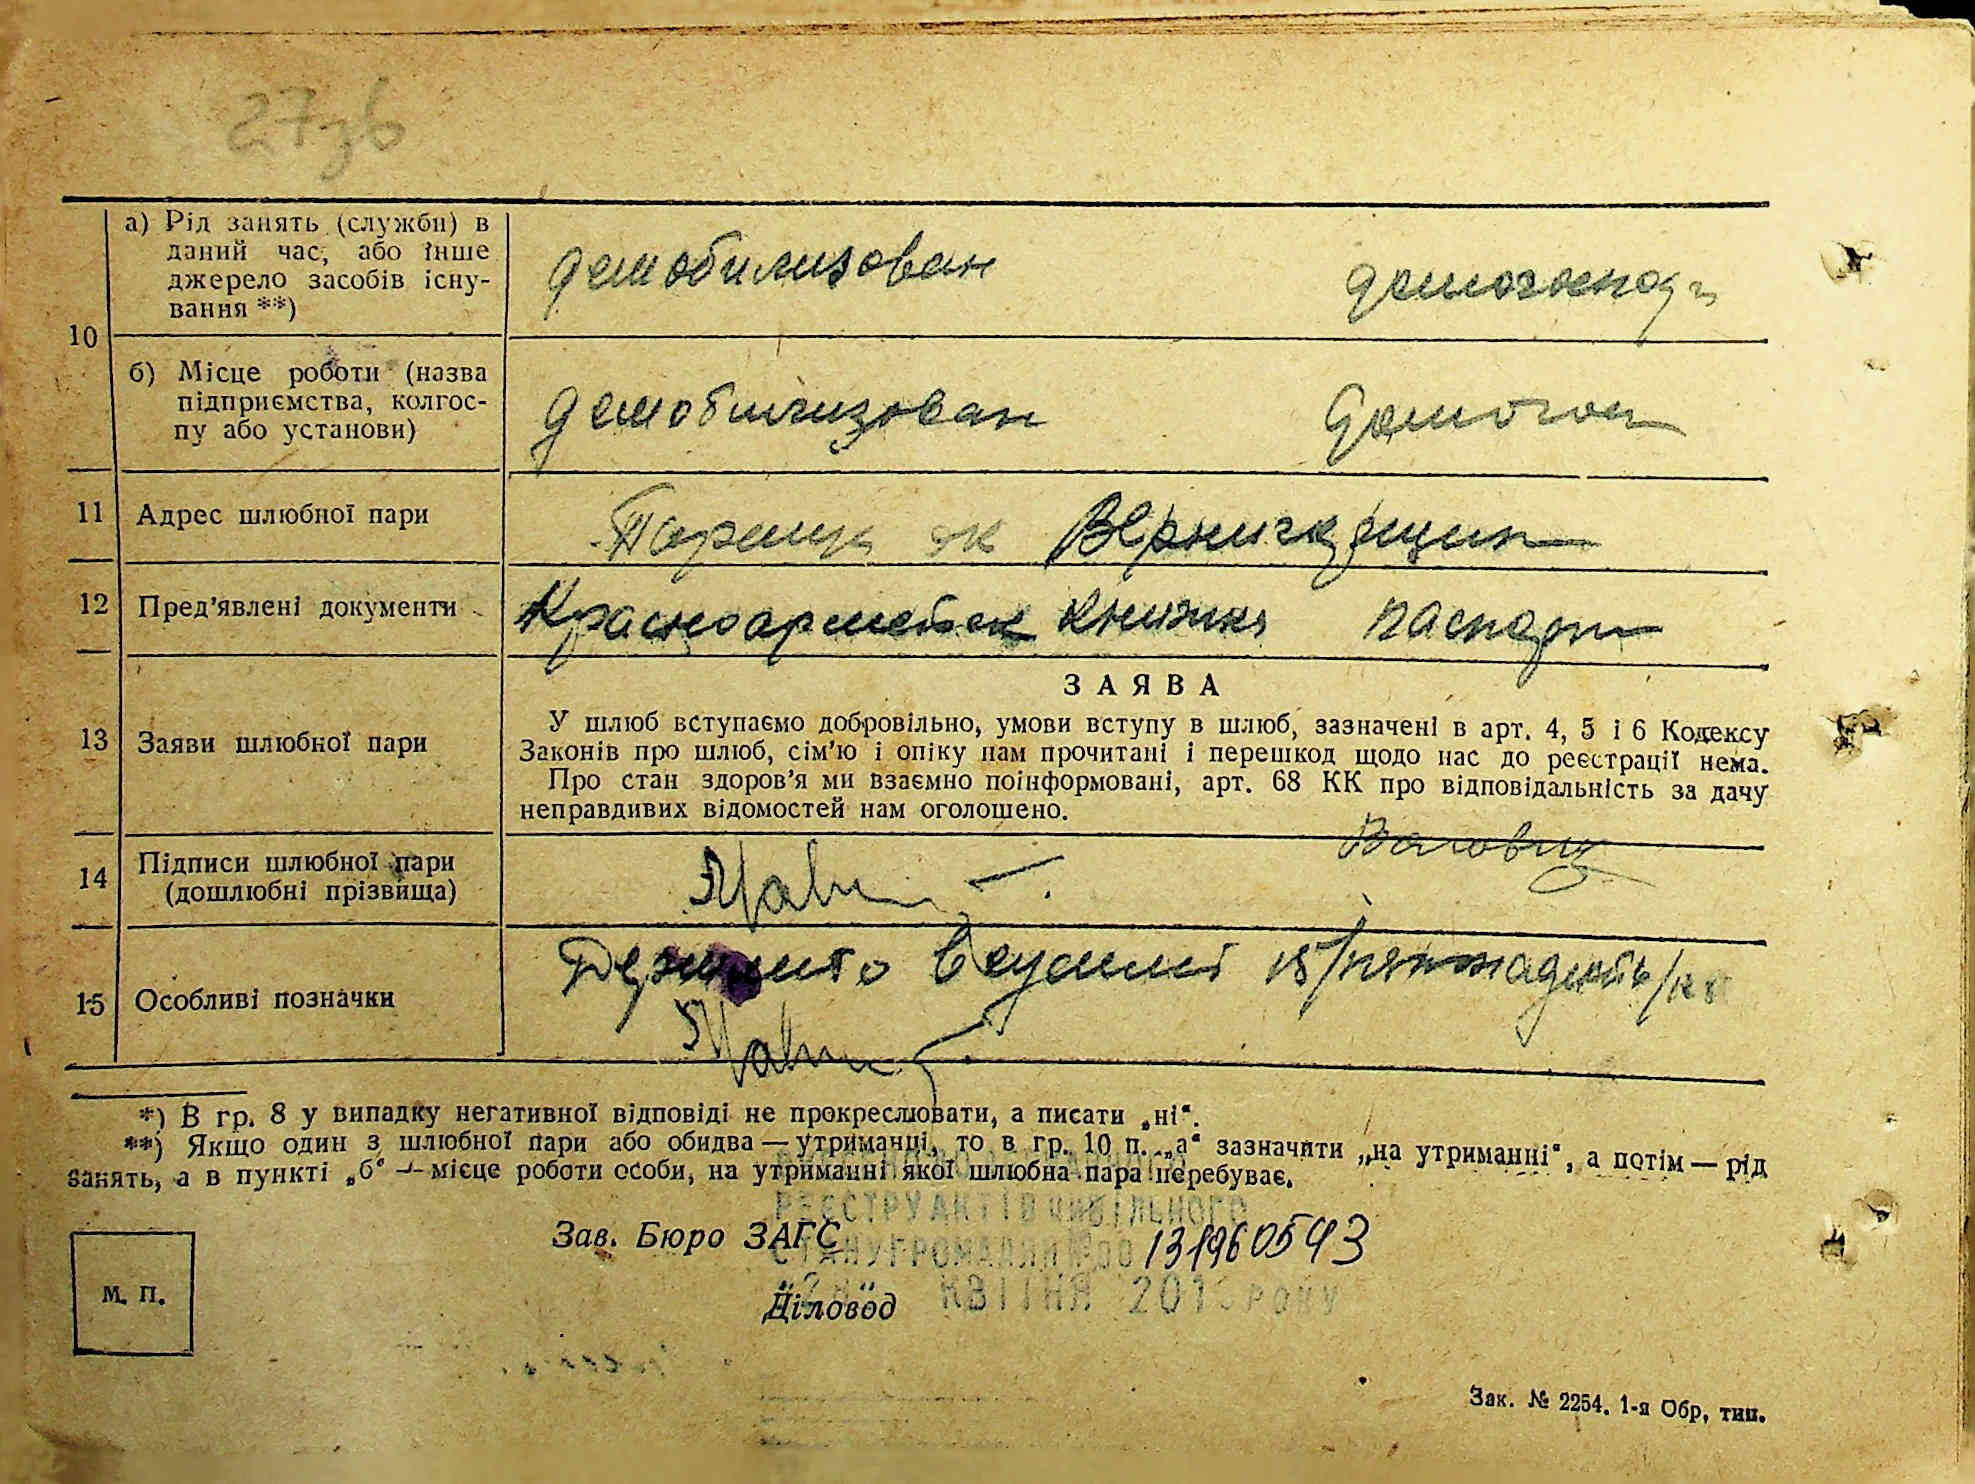 27зв
а) Рід занять (служби) в
даний час, або інше
джерело засобів існу-
вання **)
демобилизован
домогоспод
10
б) Місце роботи (назва
підприємства, колгос-
пу або установи)
демобилизован
домогос
11 Адрес шлюбної пари
12 Пред'явлені документи
Красноармейск книжка паспорт
ЗАЯВА
13 Заяви шлюбної пари
У шлюб вступаємо добровільно, умови вступу в шлюб, зазначені в арт. 4, 5 і 6 Кодексу
Законів про шлюб, сім'ю і опіку нам прочитані і перешкод щодо нас до реєстрації нема.
Про стан здоров'я ми взаємно поінформовані, арт. 68 КК про відповідальність за дачу
неправдивих відомостей нам оголошено.
14 Підписи шлюбної пари
(дошлюбні прізвища)
15 Особливі позначки
15
*) В гр. 8 у випадку негативної відповіді не прокреслювати, а писати „ні“.
**) Якщо один з шлюбної пари або обидва — утриманці, то в гр. 10 п. „а“ зазначити „на утриманні“, а потім — рід
занять, а в пункті „б“ — місце роботи особи, на утриманні якої шлюбна пара перебуває.
РЕЄСТРУ АКТІВ ЦИВІЛЬНОГО
Зав. Бюро ЗАГС
СТАНУ ГРОМАДЯН № 00 131960543
КВІТНЯ 201 РОКУ
Діловод
М. П.
Зак. № 2254. 1-я Обр, тип.